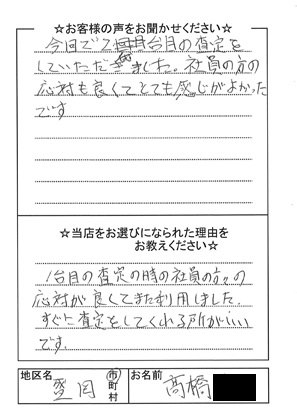 ☆お客様の声をお聞かせください☆
今回で2台目の査定を
していただきました。社員の方の
応対も良くてとても感じがよかった
です
☆当店をお選びになられた理由を
お教えください☆
1台目の査定の時の社員の方々の
応対が良くてまた利用しました.
すぐに査定をしてくれる所がいい
です
地区名 盛岡 市町村 お名前 高橋